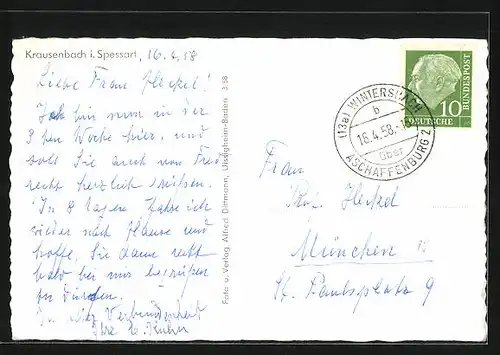 Krausenbach i. Spessart, 16.4.58
Liebe Frau Henkel!
Ich bin nun in der
3ten Woche hier, und
soll Sie auch von Friedl
recht herzlich grüßen.
In 8 Tagen fahre ich
wieder nach Hause und
hoffe, Sie dann recht
bald bei mir begrüßen
zu dürfen.
In Verbundenheit
Ihre
Foto u. Verlag Alfred Dittmann, Uissigheim-Baden 3.58
(13a) WINTERSBACH
b
16.4.58
über
ASCHAFFENBURG 2
10
DEUTSCHE
BUNDESPOST
Frau
Henkel
München
St. Paulsplatz 9